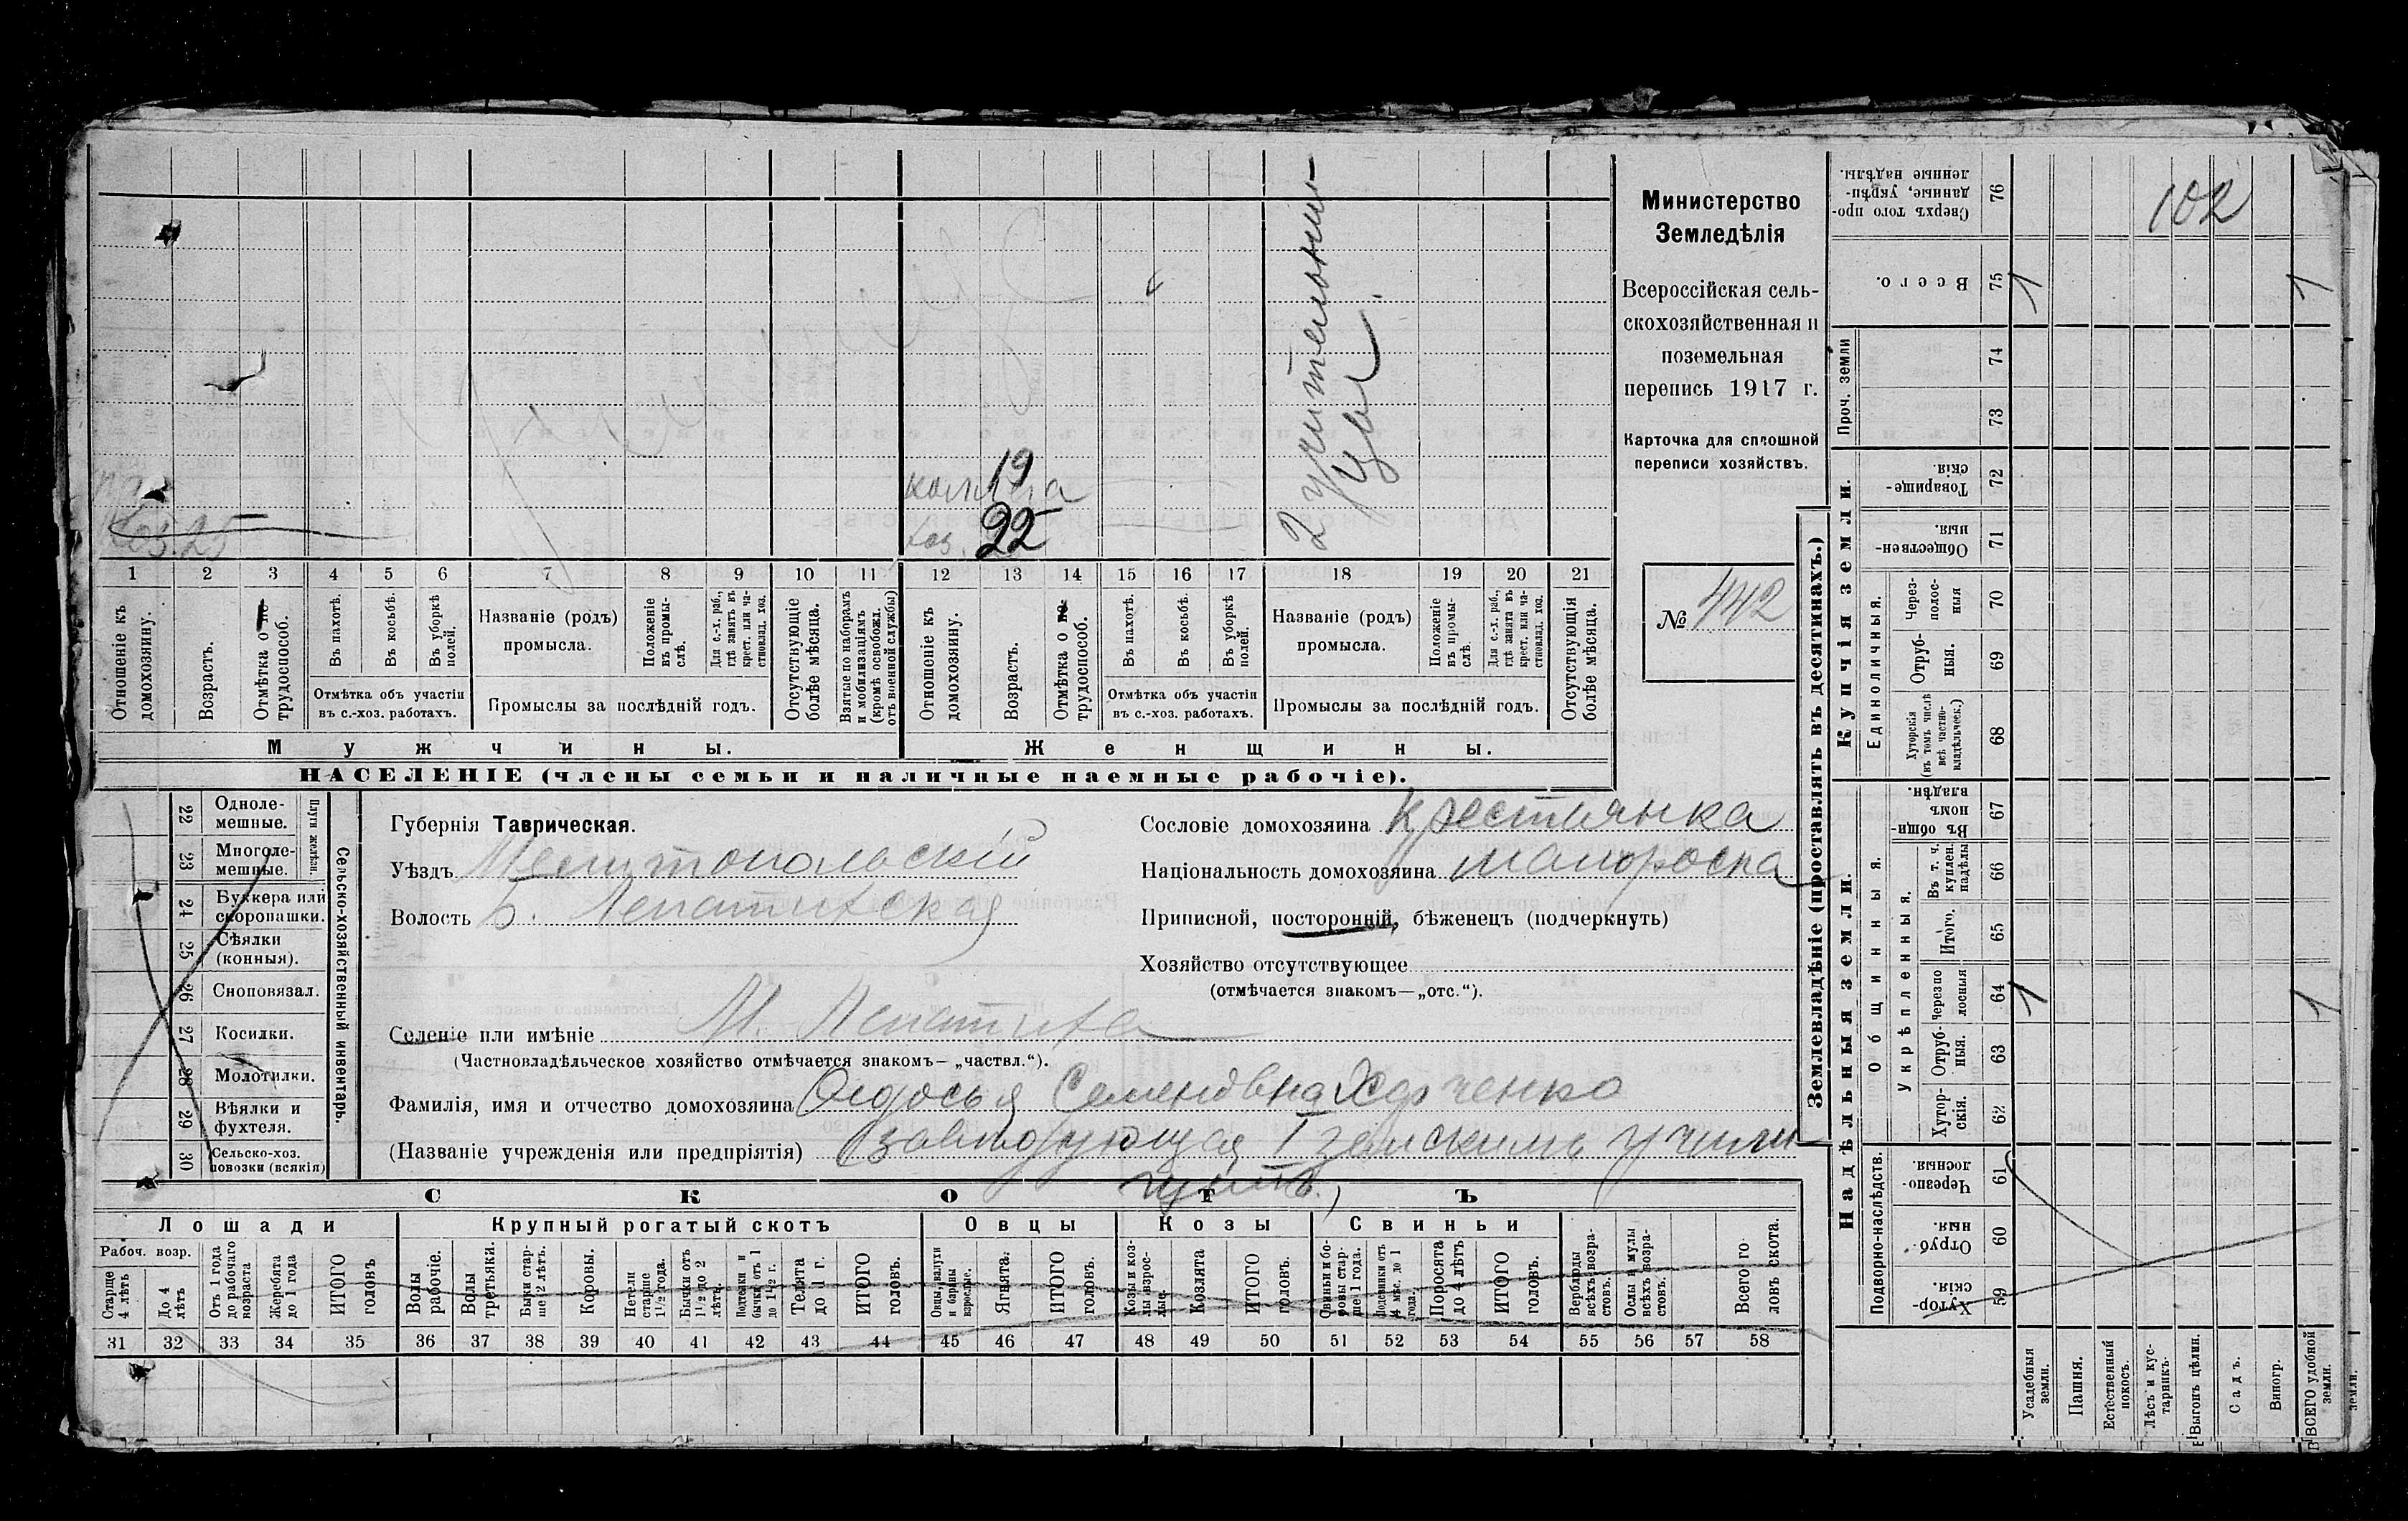 102
Министерство
Земледѣлія
Всероссійская сель-
скохозяйственная и
поземельная
перепись 1917 г.
Карточка для сплошной
переписи хозяйствъ.
№ 442
19
22
хоз. 25
2 учительни-
цы.
1 2 3 4 5 6 7 8 9 10 11 12 13 14 15 16 17 18 19 20 21
Отношеніе къ домохозяину.
Возрастъ.
Отмѣтка о не трудоспособ.
Въ пахотѣ.
Въ косьбѣ.
Въ уборкѣ полей.
Отмѣтка объ участіи въ с.-хоз. работахъ.
Названіе (родъ) промысла.
Положеніе въ промы-слѣ.
Для с.-х. раб., гдѣ занятъ въ крест. или ча-стновлад. хоз.
Промыслы за послѣдній годъ.
Отсутствующіе болѣе мѣсяца.
Взятые по наборамъ и мобилизаціямъ (кромѣ освобожд. отъ военной службы)
Отношеніе къ домохозяину.
Возрастъ.
Отмѣтка о не трудоспособ.
Въ пахотѣ.
Въ косьбѣ.
Въ уборкѣ полей.
Отмѣтка объ участіи въ с.-хоз. работахъ.
Названіе (родъ) промысла.
Положеніе въ промы-слѣ.
Для с.-х. раб., гдѣ занята въ крест. или ча-стновлад. хоз.
Промыслы за послѣдній годъ.
Отсутствующія болѣе мѣсяца.
Мужчины.
Женщины.
НАСЕЛЕНІЕ (члены семьи и наличные наемные рабочіе).
Сельско-хозяйственный инвентарь.
Плуги желѣзн.
22 Одноле-мешные.
23 Многоле-мешные.
24 Буккера или скоропашки.
25 Сѣялки (конныя).
26 Сноповязал.
27 Косилки.
28 Молотилки.
29 Вѣялки и фухтеля.
30 Сельско-хоз. повозки (всякія)
Губернія Таврическая.
Уѣздъ Мелитопольскій
Волость Б. Лепатихская
Сословіе домохозяина Крестьянка
Національность домохозяина малоросска
Приписной, посторонній, бѣженецъ (подчеркнуть)
Хозяйство отсутствующее
(отмѣчается знакомъ—„отс.“).
Селеніе или имѣніе М. Лепатиха
(Частновладѣльческое хозяйство отмѣчается знакомъ— „частвл.“).
Фамилія, имя и отчество домохозяина Федосья Семеновна Харченко
(Названіе учрежденія или предпріятія) (завѣдующая I земскимъ учили-
щемъ.)
СКОТЪ
Лошади
Крупный рогатый скотъ
Овцы
Козы
Свиньи
Рабоч. возр.
Старше 4 лѣтъ
До 4 лѣтъ
Отъ 1 года до рабочаго возраста
Жеребята до 1 года
ИТОГО головъ
Волы рабочіе.
Волы третьяки.
Быки стар-ше 2 лѣтъ.
Коровы.
Нетели старше 1 1/2 года.
Бычки отъ 1 1/2 до 2 лѣтъ.
Подтелки и бычки отъ 1 до 1 1/2 г.
Телята до 1 г.
ИТОГО головъ.
Овцы, валухи и бараны взрослые.
Ягнята.
ИТОГО головъ.
Козы и коз-лы взрос-лые.
Козлята
ИТОГО головъ.
Свиньи и бо-ровы стар-ше 1 года.
Подсвинки отъ 4 мѣс. до 1 года.
Поросята до 4 лѣтъ
ИТОГО головъ.
Верблюды всѣхъ возра-стовъ.
Ослы и мулы всѣхъ возра-стовъ.
Всего го ловъ скота.
31 32 33 34 35 36 37 38 39 40 41 42 43 44 45 46 47 48 49 50 51 52 53 54 55 56 57 58
Землевладѣніе (проставлять въ десятинахъ.)
Купчія земли.
Надѣльныя земли.
Сверхъ того про-данные, укрѣп-ленные надѣлы. 76
Всего. 75
Проч. земли
74
73
Товарище-скія. 72
Обществен-ныя. 71
Единоличныя.
Через-полос-ныя 70
Отруб-ныя. 69
Хуторскія (въ томъ числѣ всѣ частно-владѣльческ.) 68
Общинныя.
Въ общи-номъ владѣн. 67
Укрѣпленныя.
Въ т. ч. куплен. надѣлы 66
Итого. 65
черезпо лосныя 64
Отруб-ныя. 63
Хутор-скія. 62
Подворно-наслѣдств.
Черезпо-лосныя. 61
Отруб-ныя. 60
Хутор-скія. 59
1
1
1
1
Усадебныя земли.
Пашня.
Естественный покосъ.
Лѣсъ и кус-тарникъ.
Выгонъ цѣлин.
Садъ.
Виногр.
ВСЕГО удобной земли.
земли.